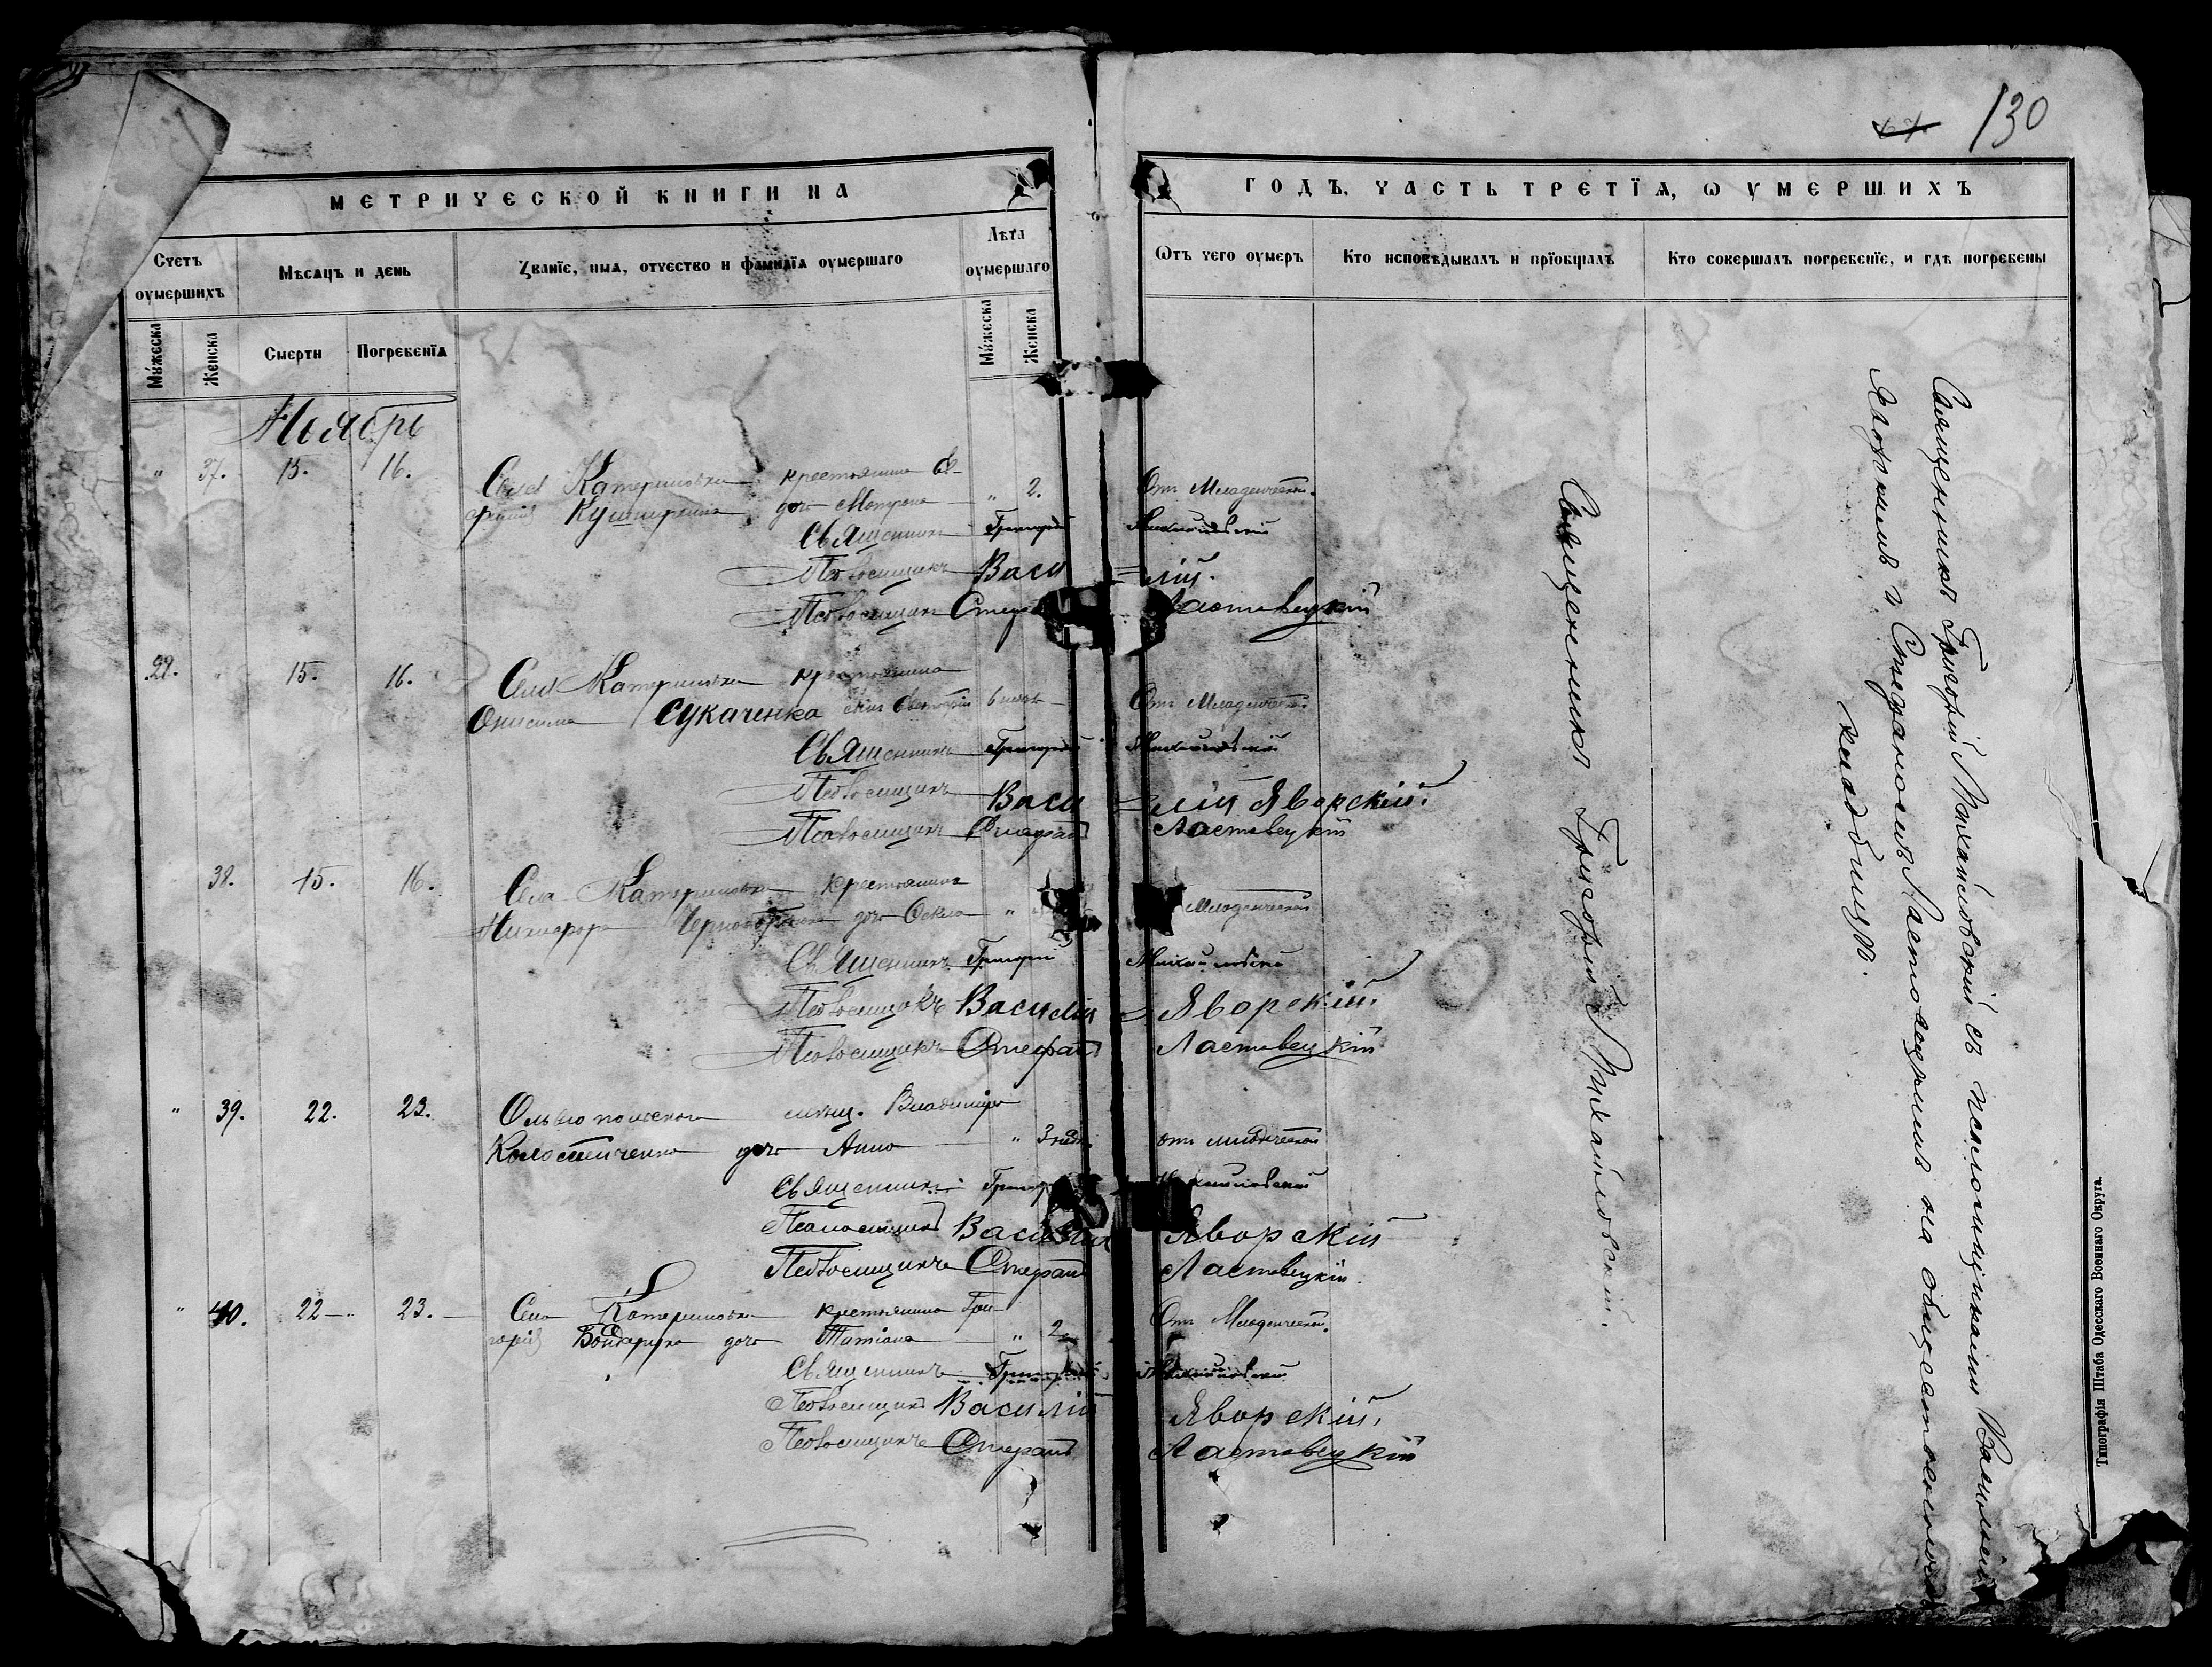 130
МЕТРИЧЕСКОЙ КНИГИ НА
ГОДЪ, ЧАСТЬ ТРЕТЇѦ, Ѡ УМЕРШИХЪ
Счетъ оумершихъ
Мѣсяцъ и день
Званїе, имѧ, отчество и фамилїѧ оумершаго
Лѣта оумершаго
Ѿтъ чего оумеръ
Кто исповѣдывалъ и прїобщалъ
Кто совершалъ погребенїе, и гдѣ погребены
Мужеска
Женска
Смерти
Погребенїѧ
Мужеска
Женска
Ноябрь
" 37. 15. 16. Села Катериновки крестьянина
Кушнирика дочь Мотрона " 2. Отъ Младенческой.
Священникъ Григорій Михайловскій
Псаломщикъ Василій.
Псаломщикъ Стефанъ Ластовецкій
22. " 15. 16. Села Катериновки крестьянина
Онисима Сукаченка сынъ Отъ Младенческой
Священникъ Григорій Михайловскій
Псаломщикъ Василій Яворскій.
Псаломщикъ Стефанъ Ластовецкій
38. 15. 16. Села Катериновки крестьянина
Никифора дочь " Младенческой
Священникъ Григорій Михайловскій
Псаломщикъ Василій Яворскій.
Псаломщикъ Стефанъ Ластовецкій
" 39. 22. 23. Ольвіопольскаго мѣщ. Владиміра
дочь Анна " 3 отъ младенческой
Священникъ Григорій Михайловскій
Псаломщикъ Василій Яворскій
Псаломщикъ Стефанъ Ластовецкій.
" 40. 22 23. Села Катериновки крестьянина Гри-
горія Бондарука дочь Татіана " 2. Отъ Младенческой.
Священникъ Григорій Михайловскій
Псаломщикъ Василій Яворскій,
Псаломщикъ Стефанъ Ластовецкій
Священникъ Григорій Михайловскій.
Священникъ Григорій Михайловскій съ псаломщиками Василіемъ
Яворскимъ и Стефаномъ Ластовецкимъ на общественномъ
кладбищѣ.
Типографія Штаба Одесскаго Военнаго Округа.